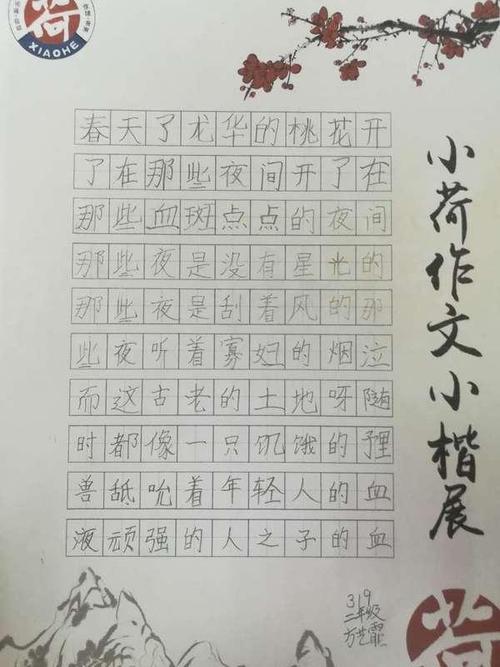 荷
XIAOHE
春天了龙华的桃花开
了在那些夜间开了在
那些血斑点点的夜间
那些夜是没有星光的
那些夜是刮着风的那
些夜听着寡妇的烟泣
而这古老的土地呀随
时都像一只饥饿的野
兽舐吮着年轻人的血
液顽强的人之子的血
小荷作文小楷展
319
二年级
方艺霏